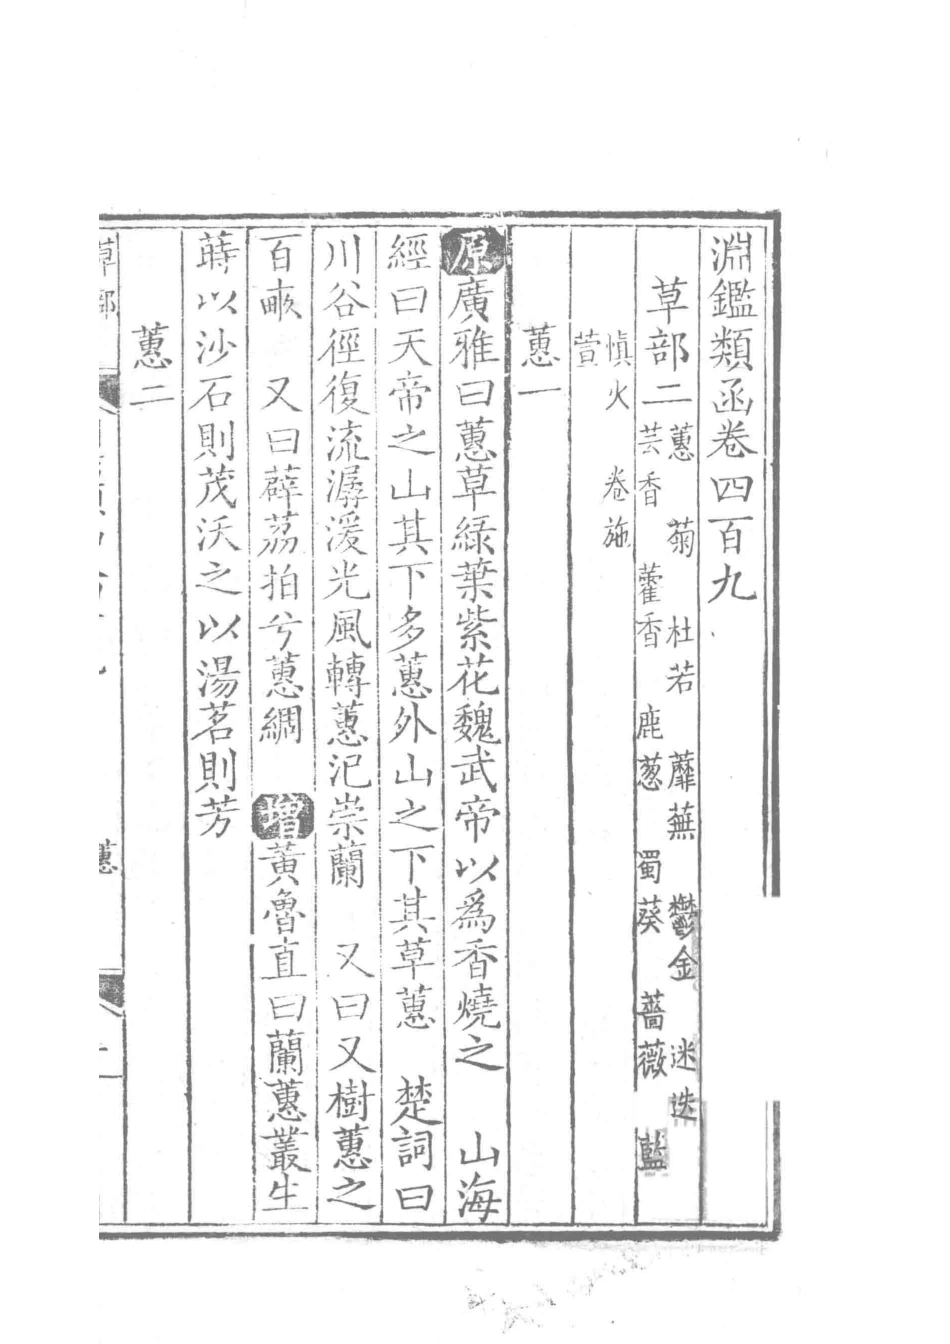 淵鑑類函卷四百九
草部二蕙 菊 杜若 蘼蕪 鬱金 迷迭
芸香 藿香 鹿葱 蜀葵 薔薇 藍
慎火 卷施
萱
蕙一
原廣雅曰蕙草綠葉紫花魏武帝以爲香燒之 山海
經曰天帝之山其下多蕙外山之下其草蕙 楚詞曰
川谷徑復流潺湲光風轉蕙汜崇蘭 又曰又樹蕙之
百畞 又曰薜荔拍兮蕙綢 增黃魯直曰蘭蕙叢生
蒔以沙石則茂沃之以湯茗則芳
蕙二
草部 蕙